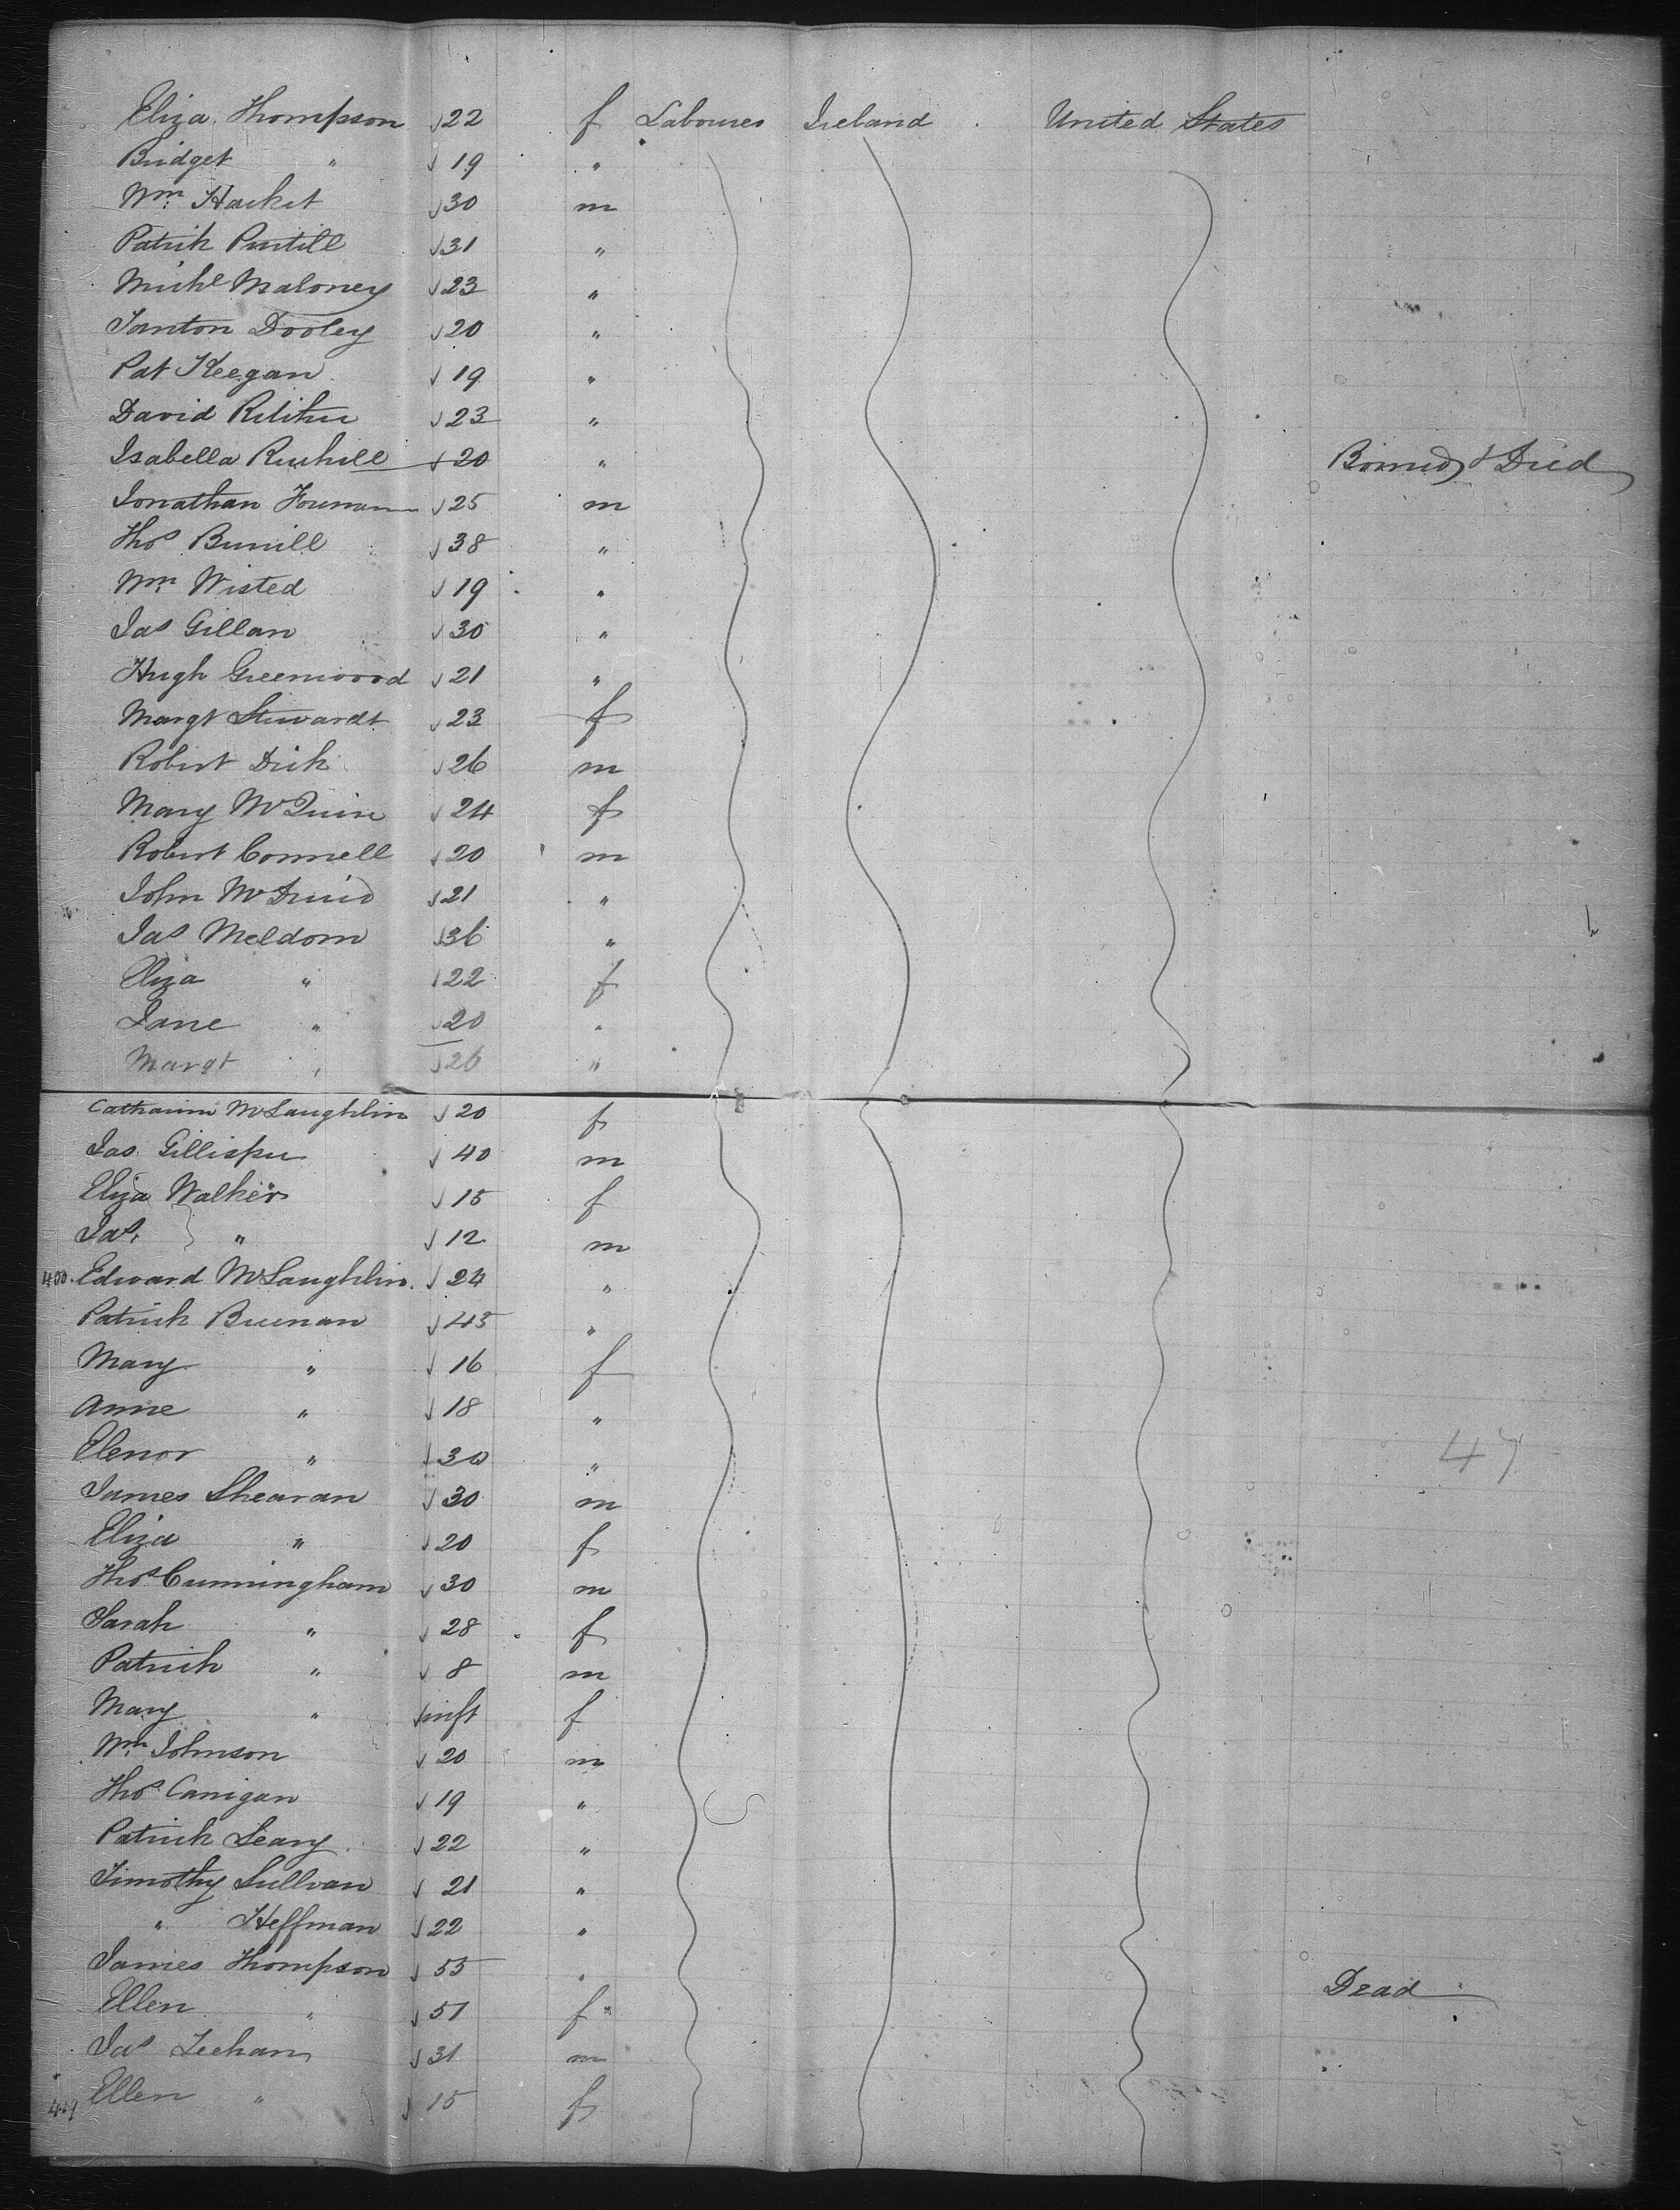 Eliza Thompson 22 f Labourer Ireland United States
Bridget " 19 "
Wm. Hacket 30 m
Patrik Purtill 31 "
Michl Maloney 23 "
Janton Dooley 20 "
Pat Keegan 19 "
David 23 "
Isabella 20 " Died
Jonathan 25 m
Thos 38 "
Wm. Wisted 19 "
Jas Gillan 30 "
Hugh Greenwood 21 "
Margt Stewardt 23 f
Robert Dick 26 m
Mary McQuin 24 f
Robert Connell 20 m
John 21 "
Jas Meldom 36 "
Eliza " 22 f
Jane " 20 "
Margt " 26 "
Catharine McLaughlin 20 f
Jas. Gillispie 40 m
Eliza Walker 15 f
Jas. " 12 m
400. Edward McLaughlin. 24 "
Patrick Brenan 45 "
Mary " 16 f
Anne " 18 "
Elenor " 30 "
47
James Shearan 30 m
Eliza " 20 f
Thos Cunningham 30 m
Sarah " 28 f
Patrick " 8 m
Mary " inft f
Wm Johnson 20 m
Thos Canigan 19 "
Patrick Leary 22 "
Timothy Sullvan 21 "
" Heffman 22 "
James Thompson 55 " Dead
Ellen " 51 f
Jas Leehan 31 m
Ellen " 15 f